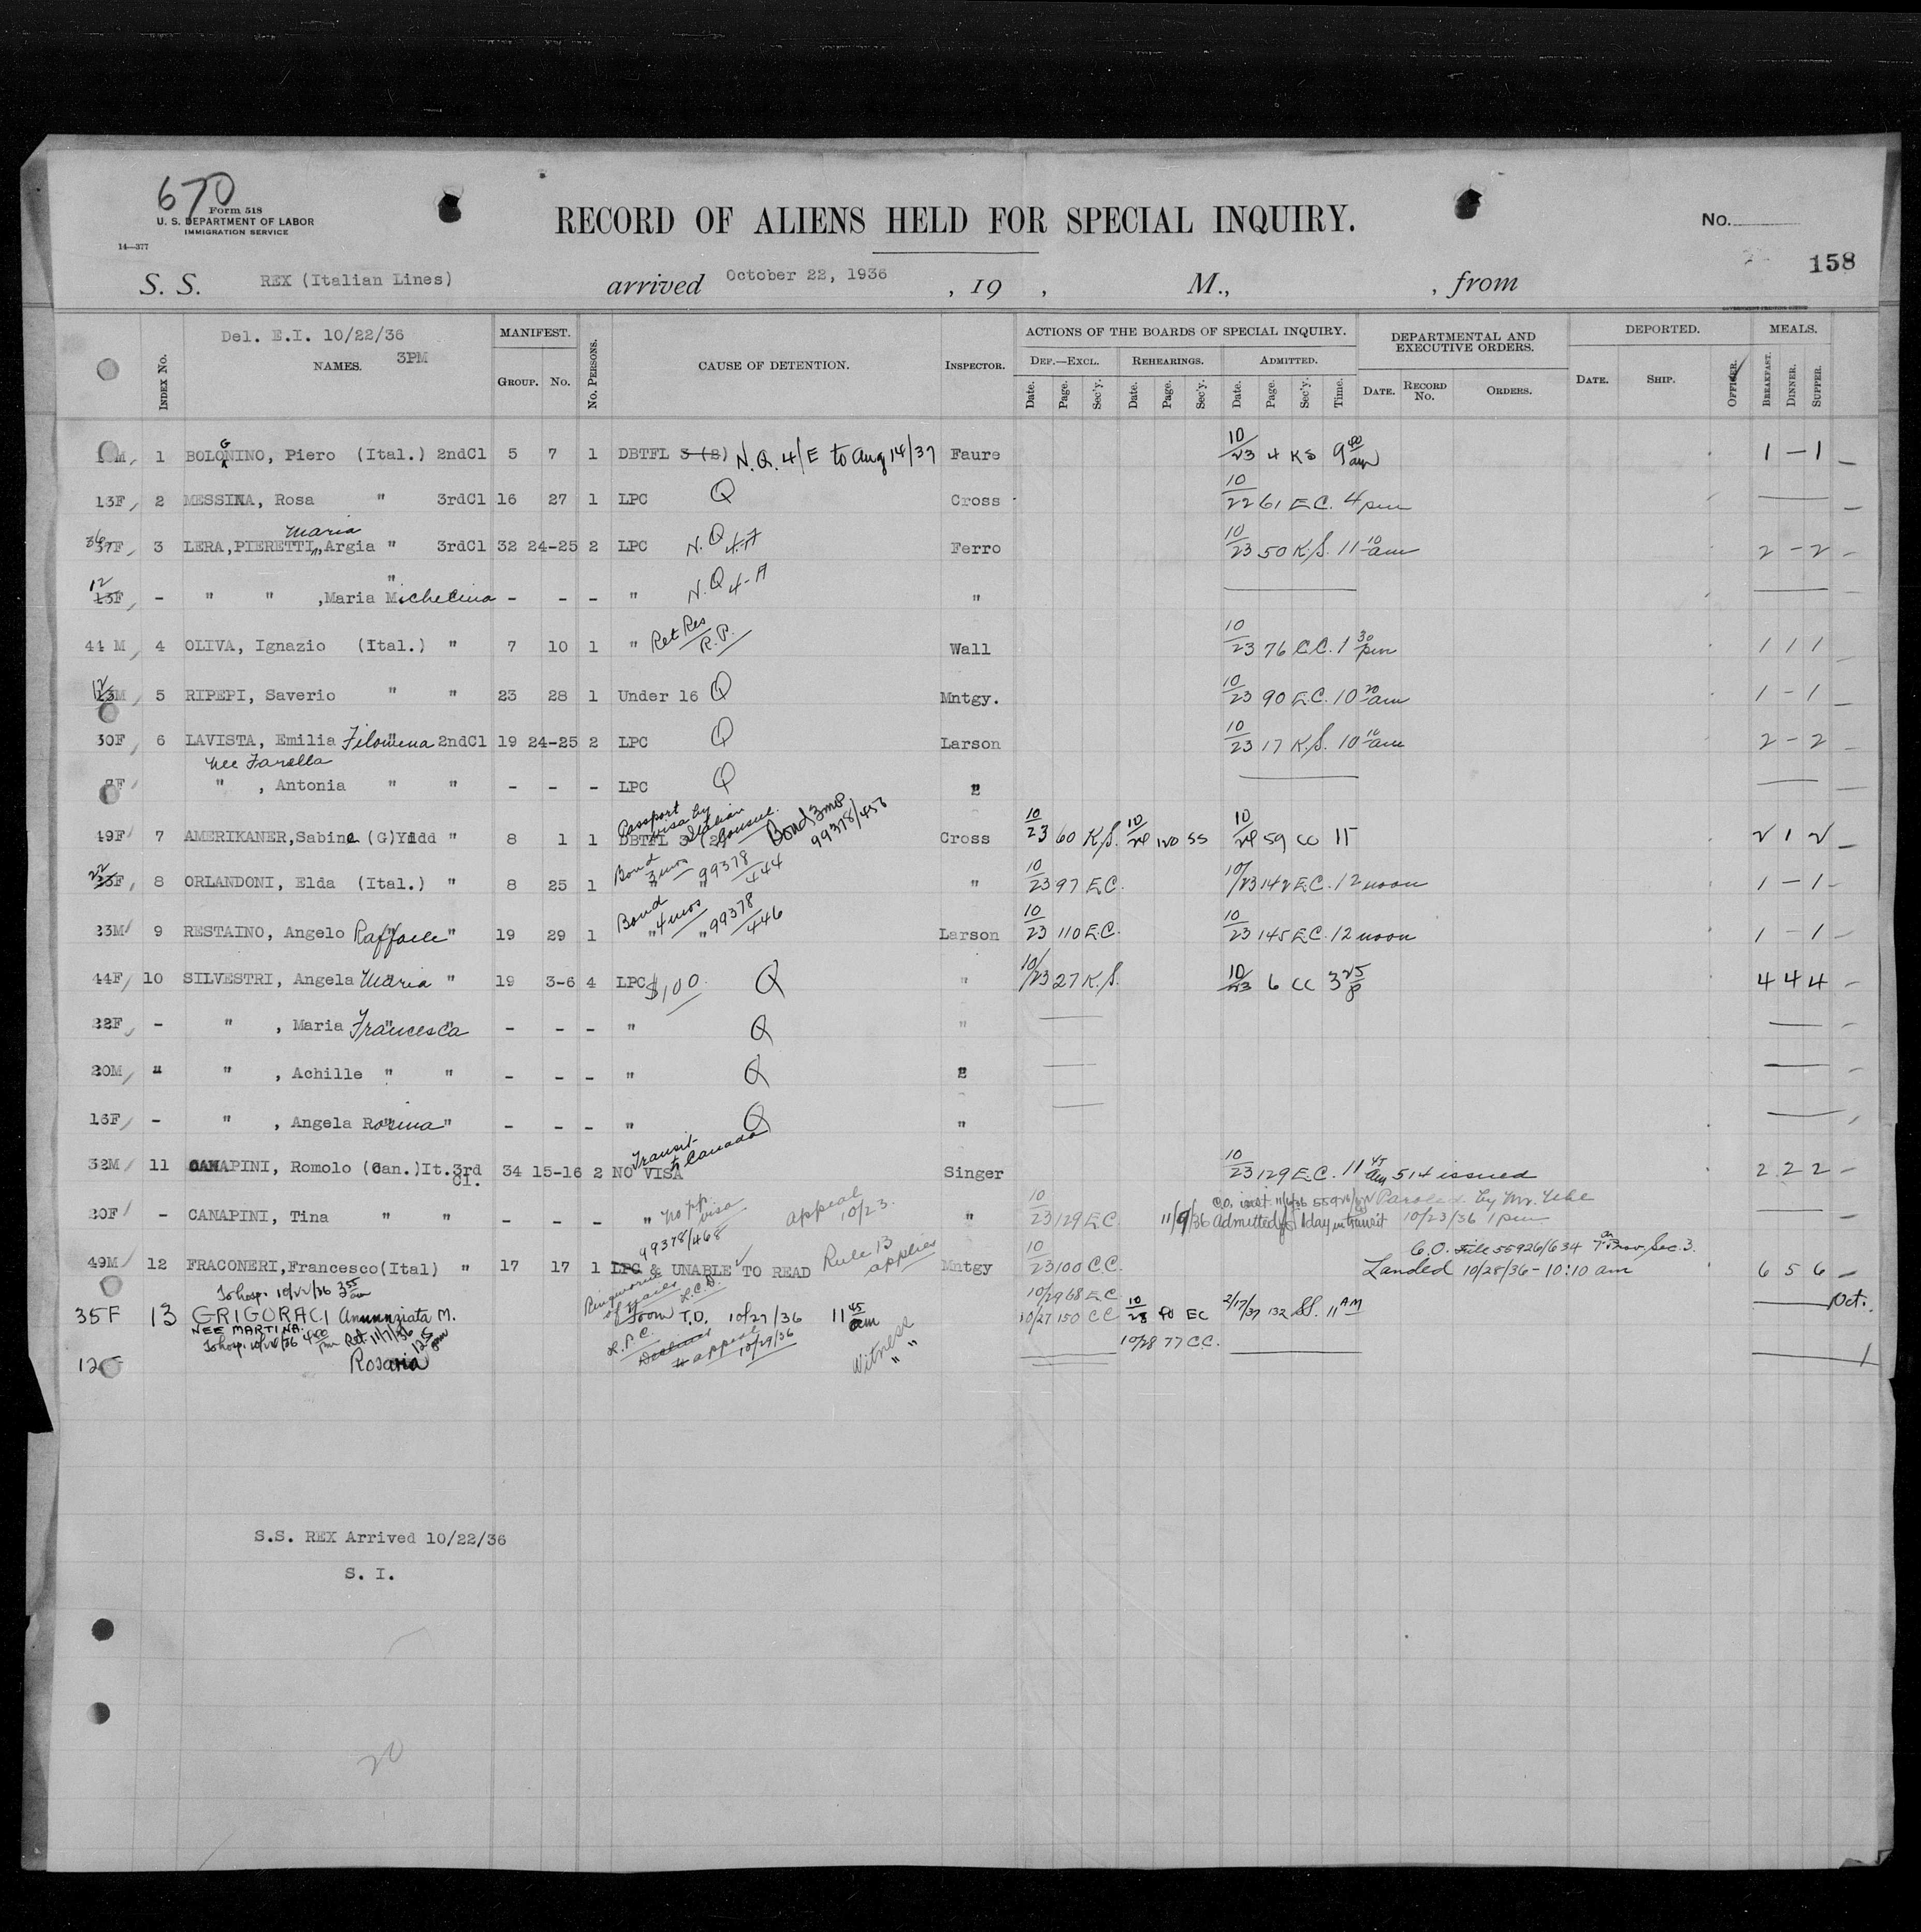 670
Form 518
U. S. DEPARTMENT OF LABOR
IMMIGRATION SERVICE
14—377
RECORD OF ALIENS HELD FOR SPECIAL INQUIRY.
No.
158
S. S. REX (Italian Lines) arrived October 22, 1936 , 19 , M., , from
Del. E.I. 10/22/36 3PM
INDEX No. NAMES. MANIFEST. GROUP. NO. No. PERSONS. CAUSE OF DETENTION. INSPECTOR. ACTIONS OF THE BOARDS OF SPECIAL INQUIRY. DEPARTMENTAL AND EXECUTIVE ORDERS. DEPORTED. MEALS.
DEF.—EXCL. REHEARINGS. ADMITTED.
Date. Page. Sec'y. Date. Page. Sec'y. Date. Page. Sec'y. Time. DATE. RECORD No. ORDERS. DATE. SHIP. OFFICER. BREAKFAST. DINNER. SUPPER.
M, 1 BOLOGNINO, Piero (Ital.) 2ndCl 5 7 1 DBTFL 3 (8) N.Q. 4/E to Aug 14/37 Faure 10/23 4 KS 9 40 am 1 – 1 –
13F 2 MESSINA, Rosa " 3rdCl 16 27 1 LPC Q Cross 10/22 61 E.C. 4 pm —
36 37F, 3 LERA, PIERETTI, Maria Argia " 3rdCl 32 24-25 2 LPC N.Q 4-A Ferro 10/23 50 K.S. 11 10 am 2 – 2 –
12 13F, - " " ,Maria Michelina " - - - " N.Q 4-A "
44 M, 4 OLIVA, Ignazio (Ital.) " 7 10 1 " Ret Res R.P. Wall 10/23 76 C.C. 1 30 pm 1 1 1 –
12 13M 5 RIPEPI, Saverio " " 23 28 1 Under 16 Q Mntgy. 10/23 90 E.C. 10 20 am 1 – 1 –
30F, 6 LAVISTA, Emilia Filomena " 2ndCl 19 24-25 2 LPC Q Larson 10/23 17 K.S. 10 10 am 2 – 2 –
nee Farella
F " , Antonia " " - - - LPC Q "
49F 7 AMERIKANER, Sabine (G) Yidd " 8 1 1 DBTFL 3 (2) Passport visa by Italian Consul. Bond 3 mos 99378/453 Cross 10/23 60 K.S. 10/24 120 SS 10/24 59 CC 2 1 2 –
22 23F, 8 ORLANDONI, Elda (Ital.) " 8 25 1 Bond 3 mos 99378/444 " 10/23 97 E.C. 10/23 142 E.C. 12 noon 1 – 1 –
33M 9 RESTAINO, Angelo Raffaele " 19 29 1 Bond 4 mos 99378/446 Larson 10/23 110 E.C. 10/23 145 E.C. 12 noon 1 – 1 –
44F 10 SILVESTRI, Angela Maria " 19 3-6 4 LPC $100. Q " 10/23 27 K.S. 10/23 6 CC 3 25 p 4 4 4 –
22F, - " , Maria Francesca " - - - " Q "
20M, " " , Achille " " - - - " Q "
16F, - " , Angela Rosina " - - - " Q "
32M 11 CANAPINI, Romolo (Can.)It. 3rd Cl. 34 15-16 2 NO VISA Transit to Canada Singer 10/23 129 E.C. 11 45 am 514 issued 2 2 2 –
20F - CANAPINI, Tina " " - - - " No pp. visa 99378/468 appeal 10/23. " 10/23 129 E.C. 11/9/36 Admitted 1 day in transit Paroled by Mr. Uhl 10/23/36 1 pm
49M 12 FRACONERI, Francesco (Ital) " 17 17 1 LPC & UNABLE TO READ Rule 13 applies Mntgy 10/23 100 C.C. C.O. File 55926/634 7th Prov. Sec. 3. Landed 10/28/36 - 10:10 am 6 5 6 –
To hosp. 10/22/36 3 55 am
35F 13 GRIGORACI Annunziata M. Ringworm of L.C.D. From T.D. 10/27/36 11 45 am 10/29 68 E.C. 10/27 150 CC 10/28 80 EC 2/17/37 132 SS. 11 AM Det.
NEE MARTINA.
To hosp. 10/28/36 4 00 pm Ret 11/7/36 12 15 pm L.P.C. appeal 10/29/36 Witness 10/28 77 C.C.
12 Rosaria " " 1
S.S. REX Arrived 10/22/36
S. I.
20